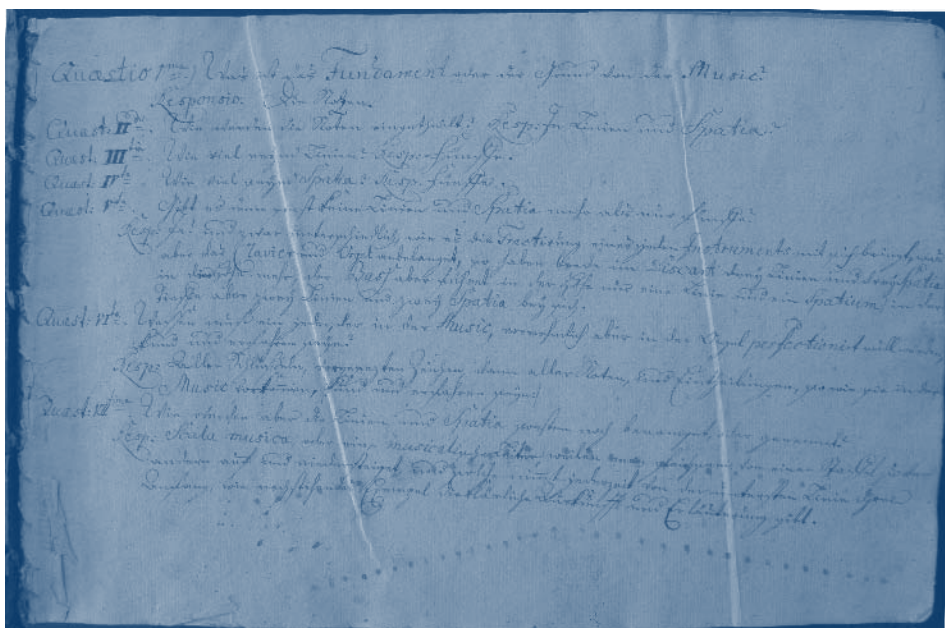 Quaestio 1ma. Was ist das Fundament oder der Grund von der Music?
Responsio. Die Noten.
Quaest: IIda. Wie werden die Noten eingetheilt? Resp: In Linien und Spatia.
Quaest: IIItia. Wie viel seynd Linien? Resp: Fünffe.
Quaest: IVta. Wie viel seynd Spatia? Resp. Fünffe.
Quaest: Vta. Gibt es dann sonst keine Linien und Spatia mehr als nur Fünffe?
Resp: Ja! und zwar unterschiedlich, wie es die Tractirung eines jeden Instruments mit sich bringt,
aber das Clavier und Orgl anbelanget, so haben beede im Discant drey Linien und drey Spatia
in der mehr, der Bass aber führet in der Höhe nur eine Linie und ein Spatium, in der
Tieffe aber zwey Linien und zwey Spatia bey sich.
Quaest: VIta. Wessen muß ein jeder, der in der Music, vornehmlich aber in der Orgel perfectionirt will werden,
kund und erfahren seyn?
Resp: aller Schlüsseln, Zeichen, dann aller Noten, und Eintheilungen, so wie sie in der
Music vorkommen, kund und erfahren seyn.
Quaest: VIIma. Wie werden aber die Linien und Spatia sonsten noch benamset, oder genennet?
Resp: Scala musica, oder eine musicalische Leiter, von einer Staffel zu der
andern auf und niedersteiget, und muß jederzeit von der untersten Linie
, wie nachstehendes Exempel Auskunfft und Erläuterung gibt.